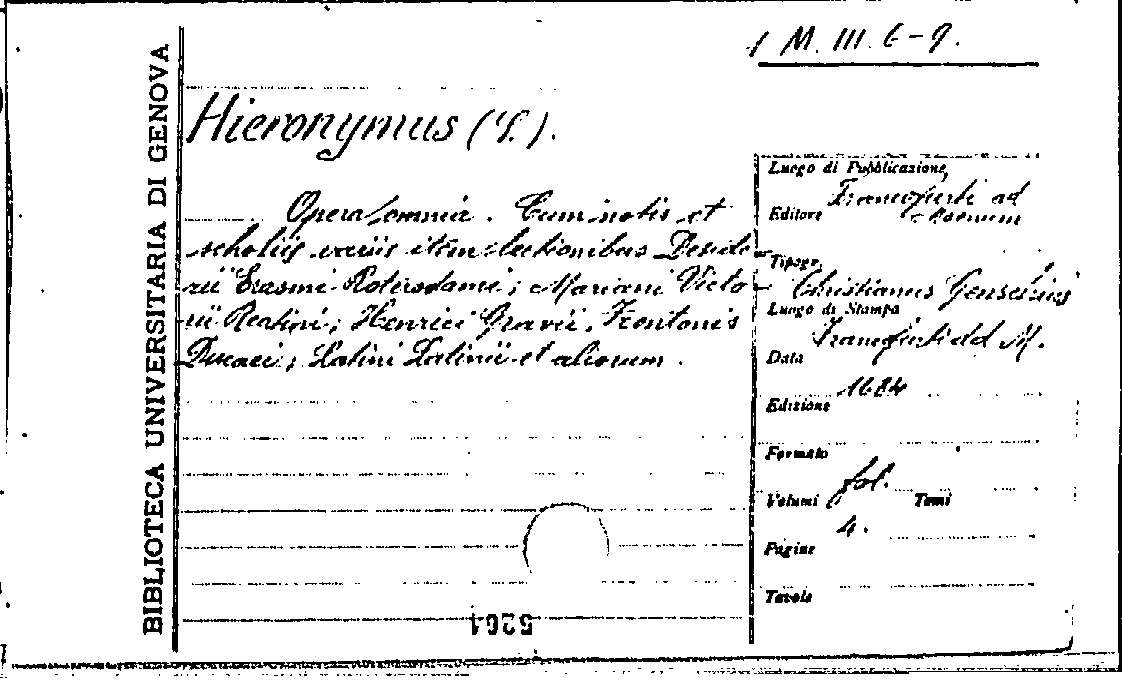 1 M. III. 6-9.
BIBLIOTECA UNIVERSITARIA DI GENOVA
Hieronymus (S.).
Opera omnia. Cum notis et
scholiis variis item lectionibus Deside-
rii Erasmi Roterodami; Mariani Victo-
rii Reatini; Henrici Gravii, Frontonis
Ducaei; Latini Latinii et aliorum.
Luogo di Pubblicazione,
Francofurti ad
Editore
Moenum
Tipogr.
Christianus Genschius
Luogo di Stampa
Francofurti ad M.
Data
1684
Edizione
Formato
fol.
Volumi Tomi
4.
Pagine
Tavole
5261